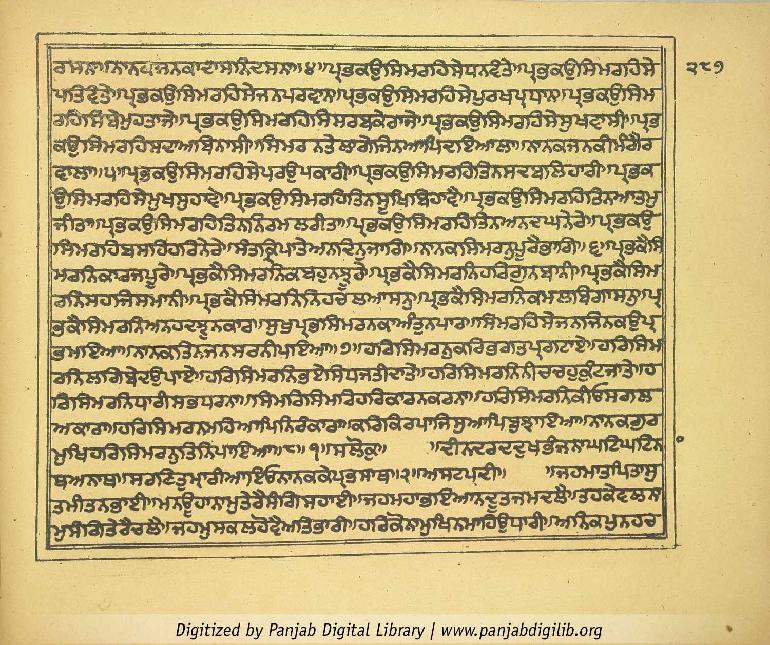 ਰਸਨਾ॥ਨਾਨਕਜਨਕਾਦਾਸਨਿਦਸਨਾ॥੪॥ਪ੍ਰਭਕਉਸਿਮਰਹਿਸੇਧਨਵੰਤੇ॥ਪ੍ਰਭਕਉਸਿਮਰਹਿਸੇ
ਪਤਿਵੰਤੇ॥ਪ੍ਰਭਕਉਸਿਮਰਹਿਸੇਜਨਪਰਵਾਨ॥ਪ੍ਰਭਕਉਸਿਮਰਹਿਸੇਪੁਰਖਪ੍ਰਧਾਨ॥ਪ੍ਰਭਕਉਸਿਮ
ਰਹਿਸਿਬੇਮੁਹਤਾਜੇ॥ਪ੍ਰਭਕਉਸਿਮਰਹਿਸਿਸਰਬਕੇਰਾਜੇ॥ਪ੍ਰਭਕਉਸਿਮਰਹਿਸੇਸੁਖਵਾਸੀ॥ਪ੍ਰਭ
ਕਉਸਿਮਰਹਿਸਦਾਅਬਿਨਾਸੀ॥ਸਿਮਰਨਤੇਲਾਗੇਜਿਨਆਪਿਦਾਇਆਲਾ॥ਨਾਨਕਜਨਕੀਮੰਗੈਰ
ਵਾਲਾ॥੫॥ਪ੍ਰਭਕਉਸਿਮਰਹਿਸੇਪਰਉਪਕਾਰੀ॥ਪ੍ਰਭਕਉਸਿਮਰਹਿਤਿਨਸਦਬਲਿਹਾਰੀ॥ਪ੍ਰਭਕ
ਉਸਿਮਰਹਿਸੇਮੁਖਸੁਹਾਵੇ॥ਪ੍ਰਭਕਉਸਿਮਰਹਿਤਿਨਸੂਖਿਬਿਹਾਵੈ॥ਪ੍ਰਭਕਉਸਿਮਰਹਿਤਿਨਆਤਮੁ
ਜੀਤਾ॥ਪ੍ਰਭਕਉਸਿਮਰਹਿਤਿਨਨਿਰਮਲਰੀਤਾ॥ਪ੍ਰਭਕਉਸਿਮਰਹਿਤਿਨਅਨਦਘਨੇਰੇ॥ਪ੍ਰਭਕਉ
ਸਿਮਰਹਿਬਸਹਿਹਰਿਨੇਰੇ॥ਸੰਤਕ੍ਰਿਪਾਤੇਅਨਦਿਨੁਜਾਗਿ॥ਨਾਨਕਸਿਮਰਨੁਪੂਰੈਭਾਗਿ॥੬॥ਪ੍ਰਭਕੈਸਿ
ਮਰਨਿਕਾਰਜਪੂਰੇ॥ਪ੍ਰਭਕੈਸਿਮਰਨਿਕਬਹੁਨਝੂਰੇ॥ਪ੍ਰਭਕੈਸਿਮਰਨਿਹਰਿਗੁਨਬਾਨੀ॥ਪ੍ਰਭਕੈਸਿਮ
ਰਨਿਸਹਜਿਸਮਾਨੀ॥ਪ੍ਰਭਕੈਸਿਮਰਨਿਨਿਹਚਲਆਸਨੁ॥ਪ੍ਰਭਕੈਸਿਮਰਨਿਕਮਲਬਿਗਾਸਨੁ॥ਪ੍ਰ
ਭਕੈਸਿਮਰਨਿਅਨਹਦਝੁਨਕਾਰ॥ਸੁਖੁਪ੍ਰਭਸਿਮਰਨਕਾਅੰਤੁਨਪਾਰ॥ਸਿਮਰਹਿਸੇਜਨਜਿਨਕਉਪ੍ਰ
ਭਮਇਆ॥ਨਾਨਕਤਿਨਜਨਸਰਨੀਪਇਆ॥੭॥ਹਰਿਸਿਮਰਨੁਕਰਿਭਗਤਪ੍ਰਗਟਾਏ॥ਹਰਿਸਿਮ
ਰਨਿਲਗਿਬੇਦਉਪਾਏ॥ਹਰਿਸਿਮਰਨਿਭਏਸਿਧਜਤੀਦਾਤੇ॥ਹਰਿਸਿਮਰਨਿਨੀਚਚਹੁਕੁੰਟਜਾਤੇ॥ਹ
ਰਿਸਿਮਰਨਿਧਾਰੀਸਭਧਰਨਾ॥ਸਿਮਰਿਸਿਮਰਿਹਰਿਕਾਰਨਕਰਨਾ॥ਹਰਿਸਿਮਰਨਿਕੀਓਸਗਲ
ਅਕਾਰਾ॥ਹਰਿਸਿਮਰਨਮਹਿਆਪਿਨਿਰੰਕਾਰਾ॥ਕਰਿਕਿਰਪਾਜਿਸੁਆਪਿਬੁਝਾਇਆ॥ਨਾਨਕਗੁਰ
ਮੁਖਿਹਰਿਸਿਮਰਨੁਤਿਨਿਪਾਇਆ॥੮॥੧॥ਸਲੋਕੁ॥ ॥ਦੀਨਦਰਦਦੁਖਭੰਜਨਾਘਟਿਘਟਿਨ
ਥਅਨਾਥ॥ਸਰਣਿਤੁਮ੍ਹਾਰੀਆਇਓਨਾਨਕਕੇਪ੍ਰਭਸਾਥ॥੨॥ਅਸਟਪਦੀ॥ ॥ਜਹਮਾਤਪਿਤਾਸੁ
ਤਮੀਤਨਭਾਈ॥ਮਨਊਹਾਨਾਮੁਤੇਰੈਸੰਗਿਸਹਾਈ॥ਜਹਮਹਾਭਇਆਨਦੂਤਜਮਦਲੈ॥ਤਹਕੇਵਲਨਾ
ਮੁਸੰਗਿਤੇਰੈਚਲੈ॥ਜਹਮੁਸਕਲਹੋਵੈਅਤਿਭਾਰੀ॥ਹਰਿਕੋਨਾਮੁਖਿਨਮਾਹਿਉਧਾਰੀ॥ਅਨਿਕਪੁਨਹਚ
੨੮੭
Digitized by Panjab Digital Library | www.panjabdigilib.org